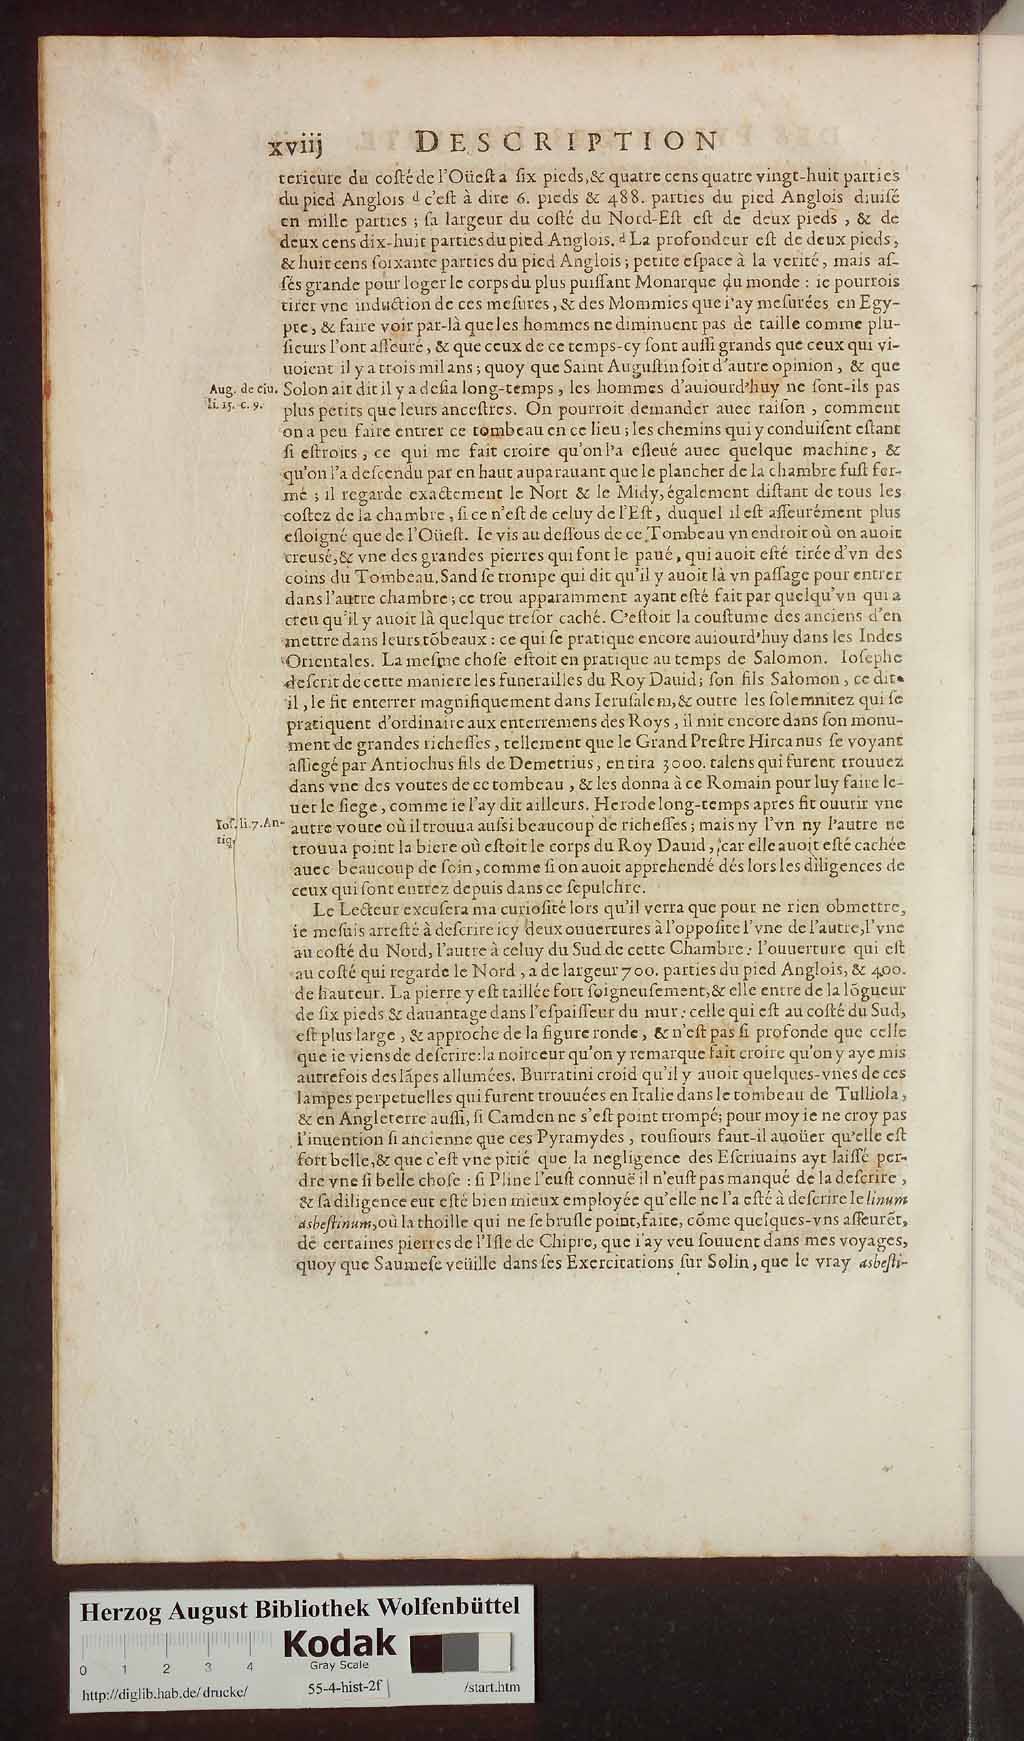 xviij DESCRIPTION
terieure du coſté de l'Oüeſt a ſix pieds, & quatre cens quatre vingt-huit parties
du pied Anglois d c'eſt à dire 6. pieds & 488. parties du pied Anglois diuiſé
en mille parties ; ſa largeur du coſté du Nord-Eſt eſt de deux pieds , & de
deux cens dix-huit parties du pied Anglois. d La profondeur eſt de deux pieds,
& huit cens ſoixante parties du pied Anglois ; petite eſpace à la verité, mais aſ-
ſés grande pour loger le corps du plus puiſſant Monarque du monde : ie pourrois
tirer vne induction de ces meſures, & des Mommies que i'ay meſurées en Egy-
pte, & faire voir par-là que les hommes ne diminuent pas de taille comme plu-
ſieurs l'ont aſſeuré, & que ceux de ce temps-cy ſont auſſi grands que ceux qui vi-
uoient il y a trois mil ans ; quoy que Saint Auguſtin ſoit d'autre opinion, & que
Aug. de ciu. Solon ait dit il y a deſia long-temps, les hommes d'auiourd'huy ne ſont-ils pas
li. 15. c. 9. plus petits que leurs anceſtres. On pourroit demander auec raiſon , comment
on a peu faire entrer ce tombeau en ce lieu ; les chemins qui y conduiſent eſtant
ſi eſtroits , ce qui me fait croire qu'on l'a eſleué auec quelque machine, &
qu'on l'a deſcendu par en haut auparauant que le plancher de la chambre fuſt fer-
mé ; il regarde exactement le Nort & le Midy, également diſtant de tous les
coſtez de la chambre, ſi ce n'eſt de celuy de l'Eſt, duquel il eſt aſſeurément plus
eſloigné que de l'Oüeſt. Ie vis au deſſous de ce Tombeau vn endroit où on auoit
creusé, & vne des grandes pierres qui font le paué, qui auoit eſté tirée d'vn des
coins du Tombeau. Sand ſe trompe qui dit qu'il y auoit là vn paſſage pour entrer
dans l'autre chambre ; ce trou apparamment ayant eſté fait par quelqu'vn qui a
creu qu'il y auoit là quelque treſor caché. C'eſtoit la couſtume des anciens d'en
mettre dans leurs tõbeaux : ce qui ſe pratique encore auiourd'huy dans les Indes
Orientales. La meſme choſe eſtoit en pratique au temps de Salomon. Ioſephe
deſcrit de cette maniere les funerailles du Roy Dauid ; ſon fils Salomon, ce dit-
il, le fit enterrer magnifiquement dans Ieruſalem, & outre les ſolemnitez qui ſe
pratiquent d'ordinaire aux enterremens des Roys, il mit encore dans ſon monu-
ment de grandes richeſſes, tellement que le Grand Preſtre Hircanus ſe voyant
aſſiegé par Antiochus fils de Demetrius, en tira 3000. talens qui furent trouuez
dans vne des voutes de ce tombeau , & les donna à ce Romain pour luy faire le-
uer le ſiege, comme ie l'ay dit ailleurs. Herode long-temps apres fit ouurir vne
Ioſ. li. 7. An- autre voute où il trouua auſsi beaucoup de richeſſes ; mais ny l'vn ny l'autre ne
tiq. trouua point la biere où eſtoit le corps du Roy Dauid, car elle auoit eſté cachée
auec beaucoup de ſoin, comme ſi on auoit apprehendé dés lors les diligences de
ceux qui ſont entrez depuis dans ce ſepulchre.
Le Lecteur excuſera ma curioſité lors qu'il verra que pour ne rien obmettre,
ie me ſuis arreſté à deſcrire icy deux ouuertures à l'oppoſite l'vne de l'autre, l'vne
au coſté du Nord, l'autre à celuy du Sud de cette Chambre : l'ouuerture qui eſt
au coſté qui regarde le Nord, a de largeur 700. parties du pied Anglois, & 400.
de hauteur. La pierre y eſt taillée fort ſoigneuſement, & elle entre de la lõgueur
de ſix pieds & dauantage dans l'eſpaiſſeur du mur : celle qui eſt au coſté du Sud,
eſt plus large , & approche de la figure ronde, & n'eſt pas ſi profonde que celle
que ie viens de deſcrire : la noirceur qu'on y remarque fait croire qu'on y aye mis
autrefois des lãpes allumées. Burratini croid qu'il y auoit quelques-vnes de ces
lampes perpetuelles qui furent trouuées en Italie dans le tombeau de Tulliola,
& en Angleterre auſſi, ſi Camden ne s'eſt point trompé ; pour moy ie ne croy pas
l'inuention ſi ancienne que ces Pyramydes , touſiours faut-il auoüer qu'elle eſt
fort belle, & que c'eſt vne pitié que la negligence des Eſcriuains ayt laiſſé per-
dre vne ſi belle choſe : ſi Pline l'euſt connuë il n'euſt pas manqué de la deſcrire,
& ſa diligence eut eſté bien mieux employée qu'elle ne l'a eſté à deſcrire le linum
asbeſtinum, où la thoille qui ne ſe bruſle point, faite, cõme quelques-vns aſſeurẽt,
de certaines pierres de l'Iſle de Chipre, que i'ay veu ſouuent dans mes voyages,
quoy que Saumeſe veüille dans ſes Exercitations ſur Solin, que le vray asbeſti-
Herzog August Bibliothek Wolfenbüttel
0 1 2 3 4
Kodak
Gray Scale
http://diglib.hab.de/drucke/ 55-4-hist-2f /start.htm